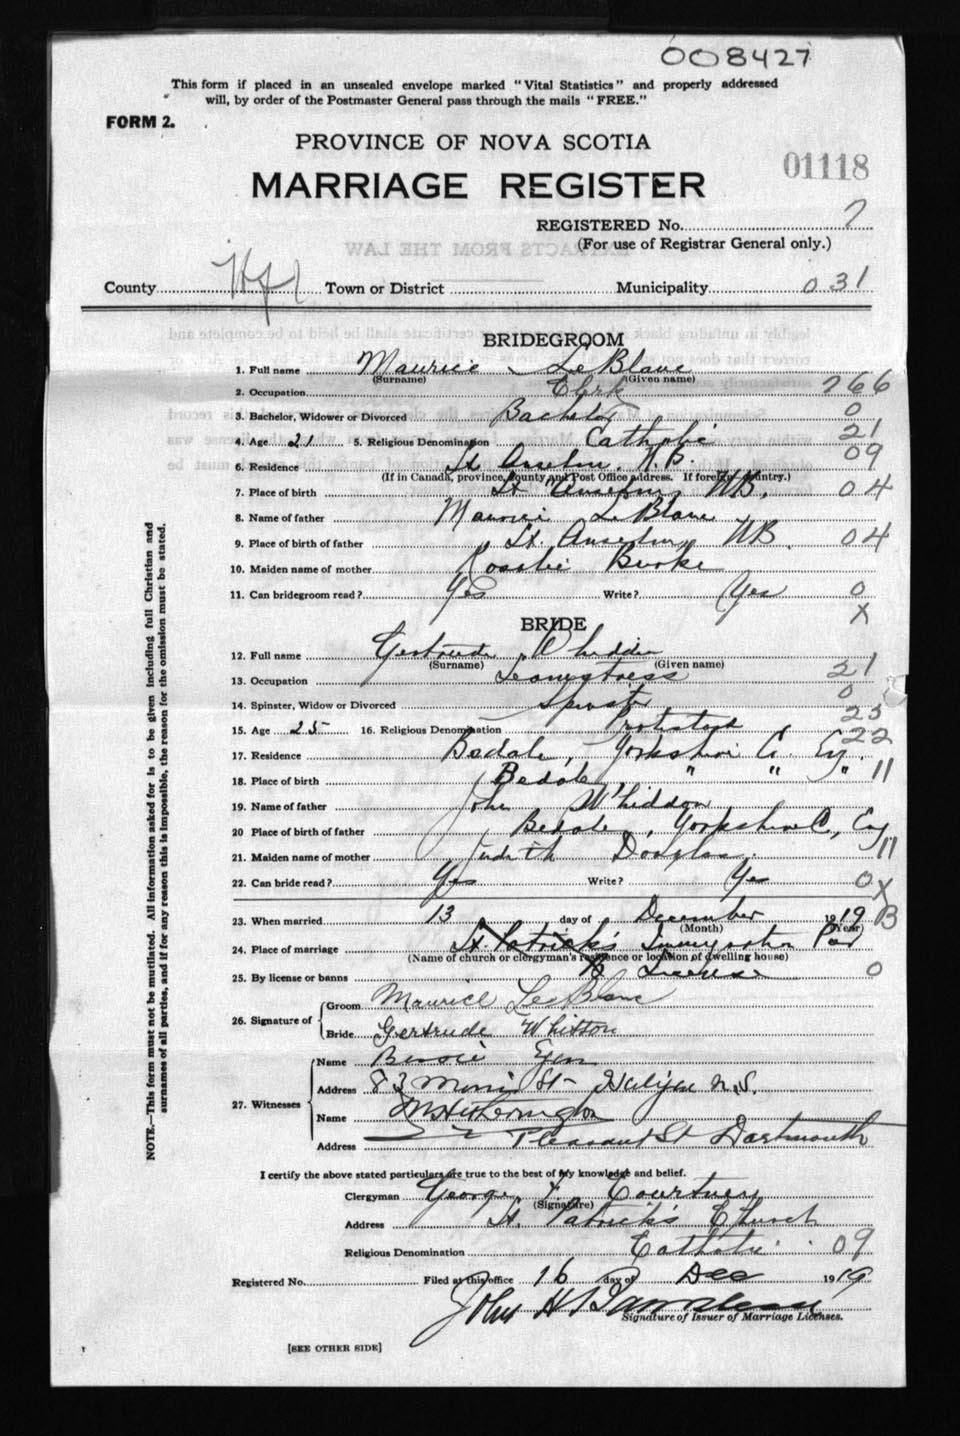 008427
This form if placed in an unsealed envelope marked "Vital Statistics" and properly addressed
will, by order of the Postmaster General pass through the mails "FREE."
FORM 2.
PROVINCE OF NOVA SCOTIA
01118
MARRIAGE REGISTER
REGISTERED No. 7
(For use of Registrar General only.)
County Hfx Town or District Municipality 031
BRIDEGROOM
1. Full name Maurice LeBlanc
(Surname) (Given name)
2. Occupation Clerk 266
3. Bachelor, Widower or Divorced Bachelor 0
4. Age 21 5. Religious Denomination Catholic 21
6. Residence St. Anselm, N.B. 09
(If in Canada, province, county and Post Office address. If foreign country.)
7. Place of birth St Anselm, NB. 04
8. Name of father Maurice LeBlanc
9. Place of birth of father St. Anselm, NB 04
10. Maiden name of mother Rosalie Burke
11. Can bridegroom read? Yes Write? Yes 0
X
BRIDE
12. Full name Gertrude Whidden
(Surname) (Given name)
13. Occupation Seamstress 21
14. Spinster, Widow or Divorced Spinster 0
15. Age 25 16. Religious Denomination Protestant 25
17. Residence Bedale, Yorkshire Co. Eng. 22
18. Place of birth Bedale " " " 11
19. Name of father John Whiddon
20 Place of birth of father Bedale, Yorkshire Co, Eng 11
21. Maiden name of mother Judith Douglas.
22. Can bride read? Yes Write? Yes 0 X
23. When married 13 day of December 1919 B
(Month) (Year)
24. Place of marriage St. Patrick's Immigration
(Name of church or clergyman's residence or location of dwelling house)
25. By license or banns By License 0
26. Signature of
Groom Maurice LeBlanc
Bride Gertrude Whitton
27. Witnesses
Name Bessie Egan
Address 82 Morris St- Halifax N.S.
Name Hetherington
Address Pleasant St Dartmouth
I certify the above stated particulars are true to the best of my knowledge and belief.
Clergyman George F. Courtney
(Signature)
Address St. Patrick's Church
Religious Denomination Catholic 09
Registered No. Filed at this office 16 day of Dec 1919
John H
Signature of Issuer of Marriage Licenses.
[SEE OTHER SIDE]
NOTE.—This form must not be mutilated. All information asked for is to be given including full Christian and
surnames of all parties, and if for any reason this is impossible, the reason for the omission must be stated.